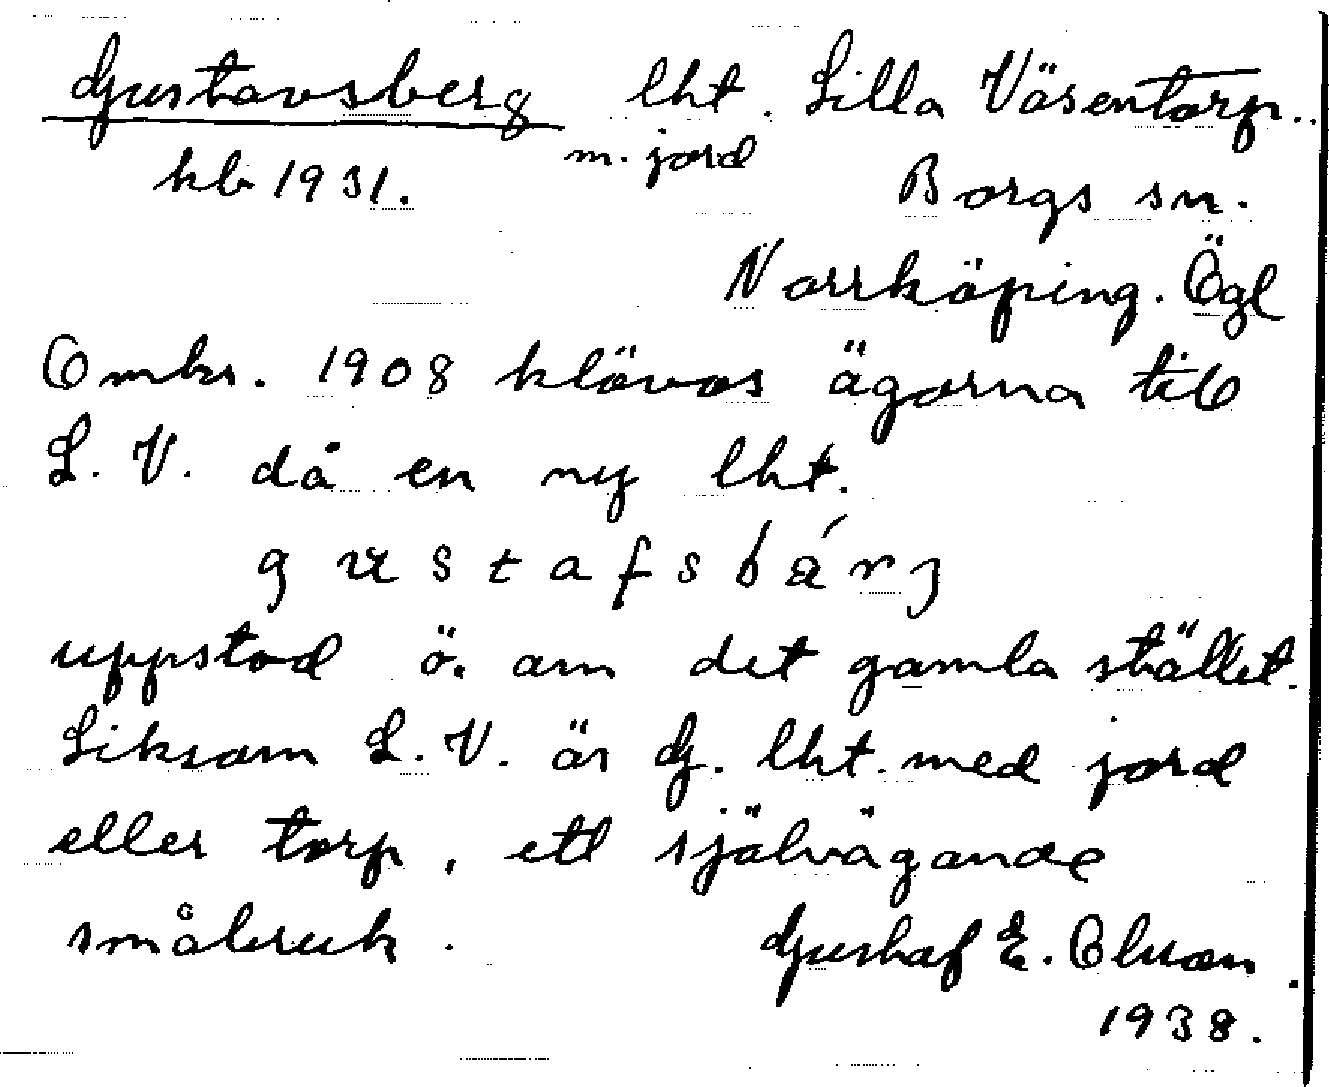 Gustavsberg lht. Lilla Väsentorp.
m. jord
kb 1931. Borgs sn.
Norrköping. Ögl
Omkr. 1908 klövos ägorna till
L. V. då en ny lht.
gustafsbárj
uppstod ö. om det gamla stället.
Liksom L. V. är G. lht. med jord
eller torp, ett självägande
småbruk. Gustaf E. Olsson
1938.